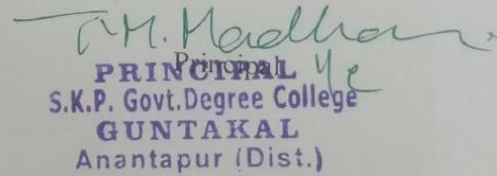 T.M. Madhan
Principal
PRINCIPAL I/c
S.K.P. Govt.Degree College
GUNTAKAL
Anantapur (Dist.)